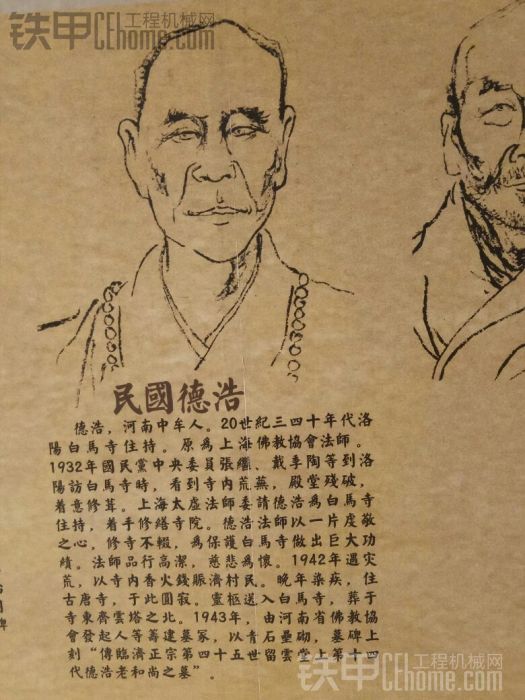 铁甲 工程机械网
CEhome.com
铁甲 工程机械网
CEhome.com
民國德浩
德浩，河南中牟人。20世紀三四十年代洛
陽白馬寺住持。原爲上海佛教協會法師。
1932年國民黨中央委員張繼、戴季陶等到洛
陽訪白馬寺時，看到寺内荒蕪，殿堂殘破，
着意修葺。上海太虛法師委請德浩爲白馬寺
住持，着手修繕寺院。德浩法師以一片虔敬
之心，修寺不輟，爲保護白馬寺做出巨大功
績。法師品行高潔，慈悲爲懷。1942年遇灾
荒，以寺内香火錢賑濟村民。晚年染疾，住
古唐寺，于此圓寂。靈柩送入白馬寺，葬于
寺東齊雲塔之北。1943年，由河南省佛教協
會發起人等籌建墓冢，以青石壘砌，墓碑上
刻“傳臨濟正宗第四十五世留雲堂上第十四
代德浩老和尚之墓”。
铁甲 工程机械网
CEhome.com